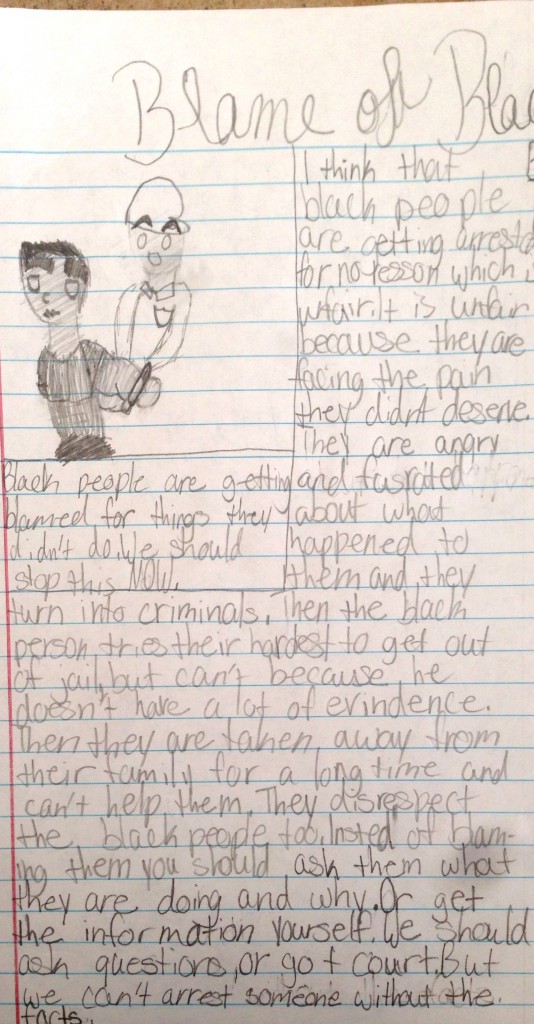 Blame of Blac
I think that
black people
are getting arrested
for no resson which is
unfair. It is unfair
because they are
facing the pain
they didnt deserve.
They are angry
and fusrated
about what
happened to
them and they
Black people are getting
blamed for things they
didn't do. We should
stop this NOW.
turn into criminals. Then the black
person tries their hardest to get out
of jail, but can't because he
doesn't have a lot of evindence.
Then they are taken away from
their family for a long time and
can't help them. They disrespect
the black people too. Insted of blam-
ing them you should ask them what
they are doing and why. Or get
the information yourself. We should
ask questions, or go t court. But
we can't arrest someone without the
facts.